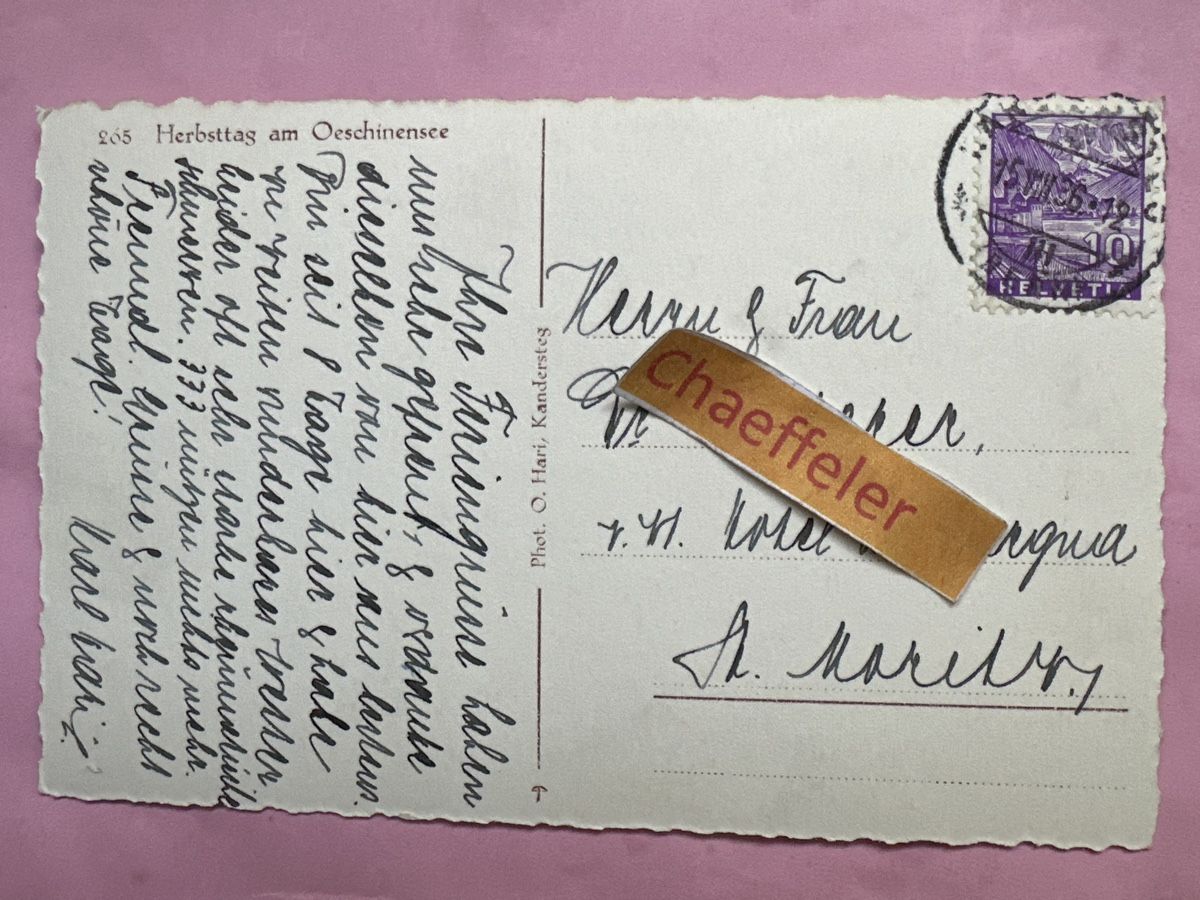 265 Herbsttag am Oeschinensee
Ihre Feriengrüsse haben
uns sehr gefreut, & verdanke
dieselben von hier aus bestens.
Bin seit 8 Tage hier & habe
zu reisen wunderbares Wetter,
leider oft sehr starke
schmerzen. 333 nützen nichts mehr.
Freund. Grüsse & noch recht
schöne Tage!
Karl
Phot. O. Hari, Kandersteg
Herrn & Frau
Chaeffeler
Hotel
St. Moritz.
10
HELVETIA